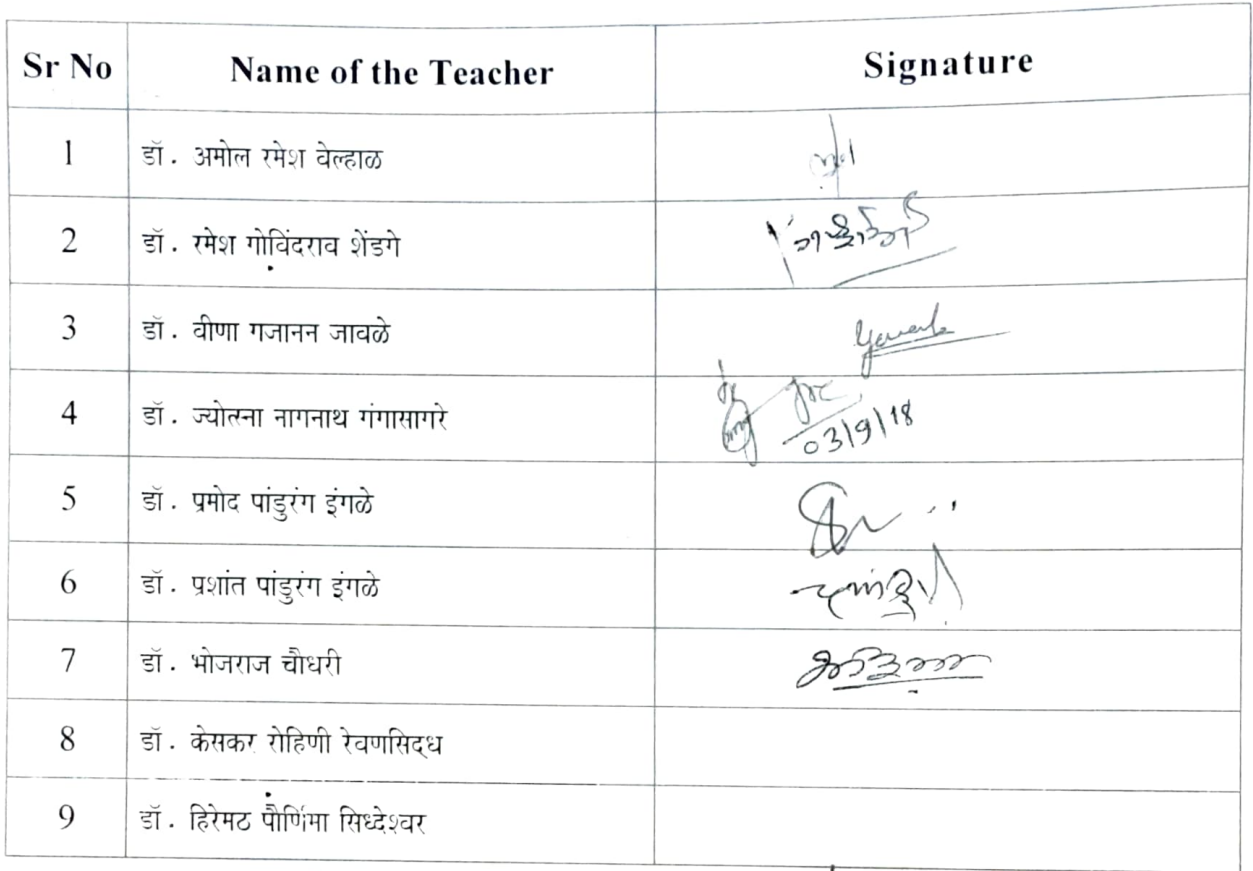 Sr No Name of the Teacher Signature
1 डॉ. अमोल रमेश वेल्हाळ
2 डॉ. रमेश गोविंदराव शेंडगे
3 डॉ. वीणा गजानन जावळे
4 डॉ. ज्योत्स्ना नागनाथ गंगासागरे 03/9/18
5 डॉ. प्रमोद पांडुरंग इंगळे
6 डॉ. प्रशांत पांडुरंग इंगळे
7 डॉ. भोजराज चौधरी
8 डॉ. केसकर रोहिणी रेवणसिद्ध
9 डॉ. हिरेमठ पौर्णिमा सिध्देश्वर